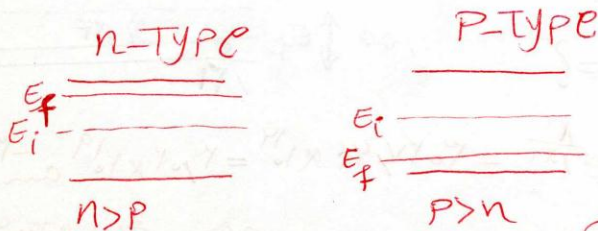 n-Type
Ef
Ei
n>p
P-Type
Ei
Ef
P>n